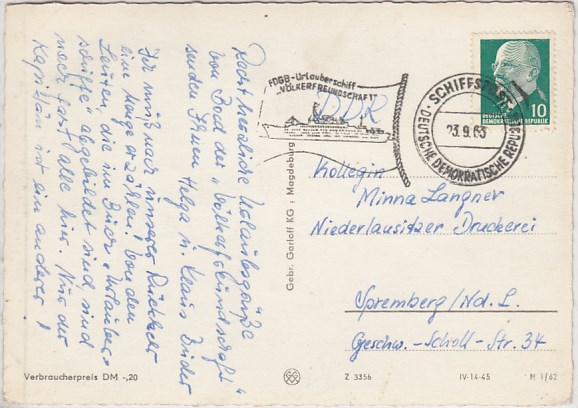 Recht herzliche Urlaubsgrüße
von Bord der „Völkerfreundschaft"
senden Ihnen Helga u. Klaus
Ihr müßt nach unserer Rückkehr
eine Menge erzählen! Von den
Leuten, die im Buch „Urlauber-
schiffe" abgebildet sind, sind
noch fast alle hier. Nur der
Kapitän ist ein anderer!
FDGB-Urlauberschiff
„VÖLKERFREUNDSCHAFT"
DDR
SCHIFFSPOST
23.9.63
DEUTSCHE DEMOKRATISCHE REPUBLIK
10
DEUTSCHE
DEMOKRATISCHE REPUBLIK
Kollegin
Minna Langner
Niederlausitzer Druckerei
Spremberg/Nd. L.
Geschw.-Scholl-Str. 34
Gebr. Garloff KG, Magdeburg
Verbraucherpreis DM -,20
Z 3356
IV-14-45
M 1/62